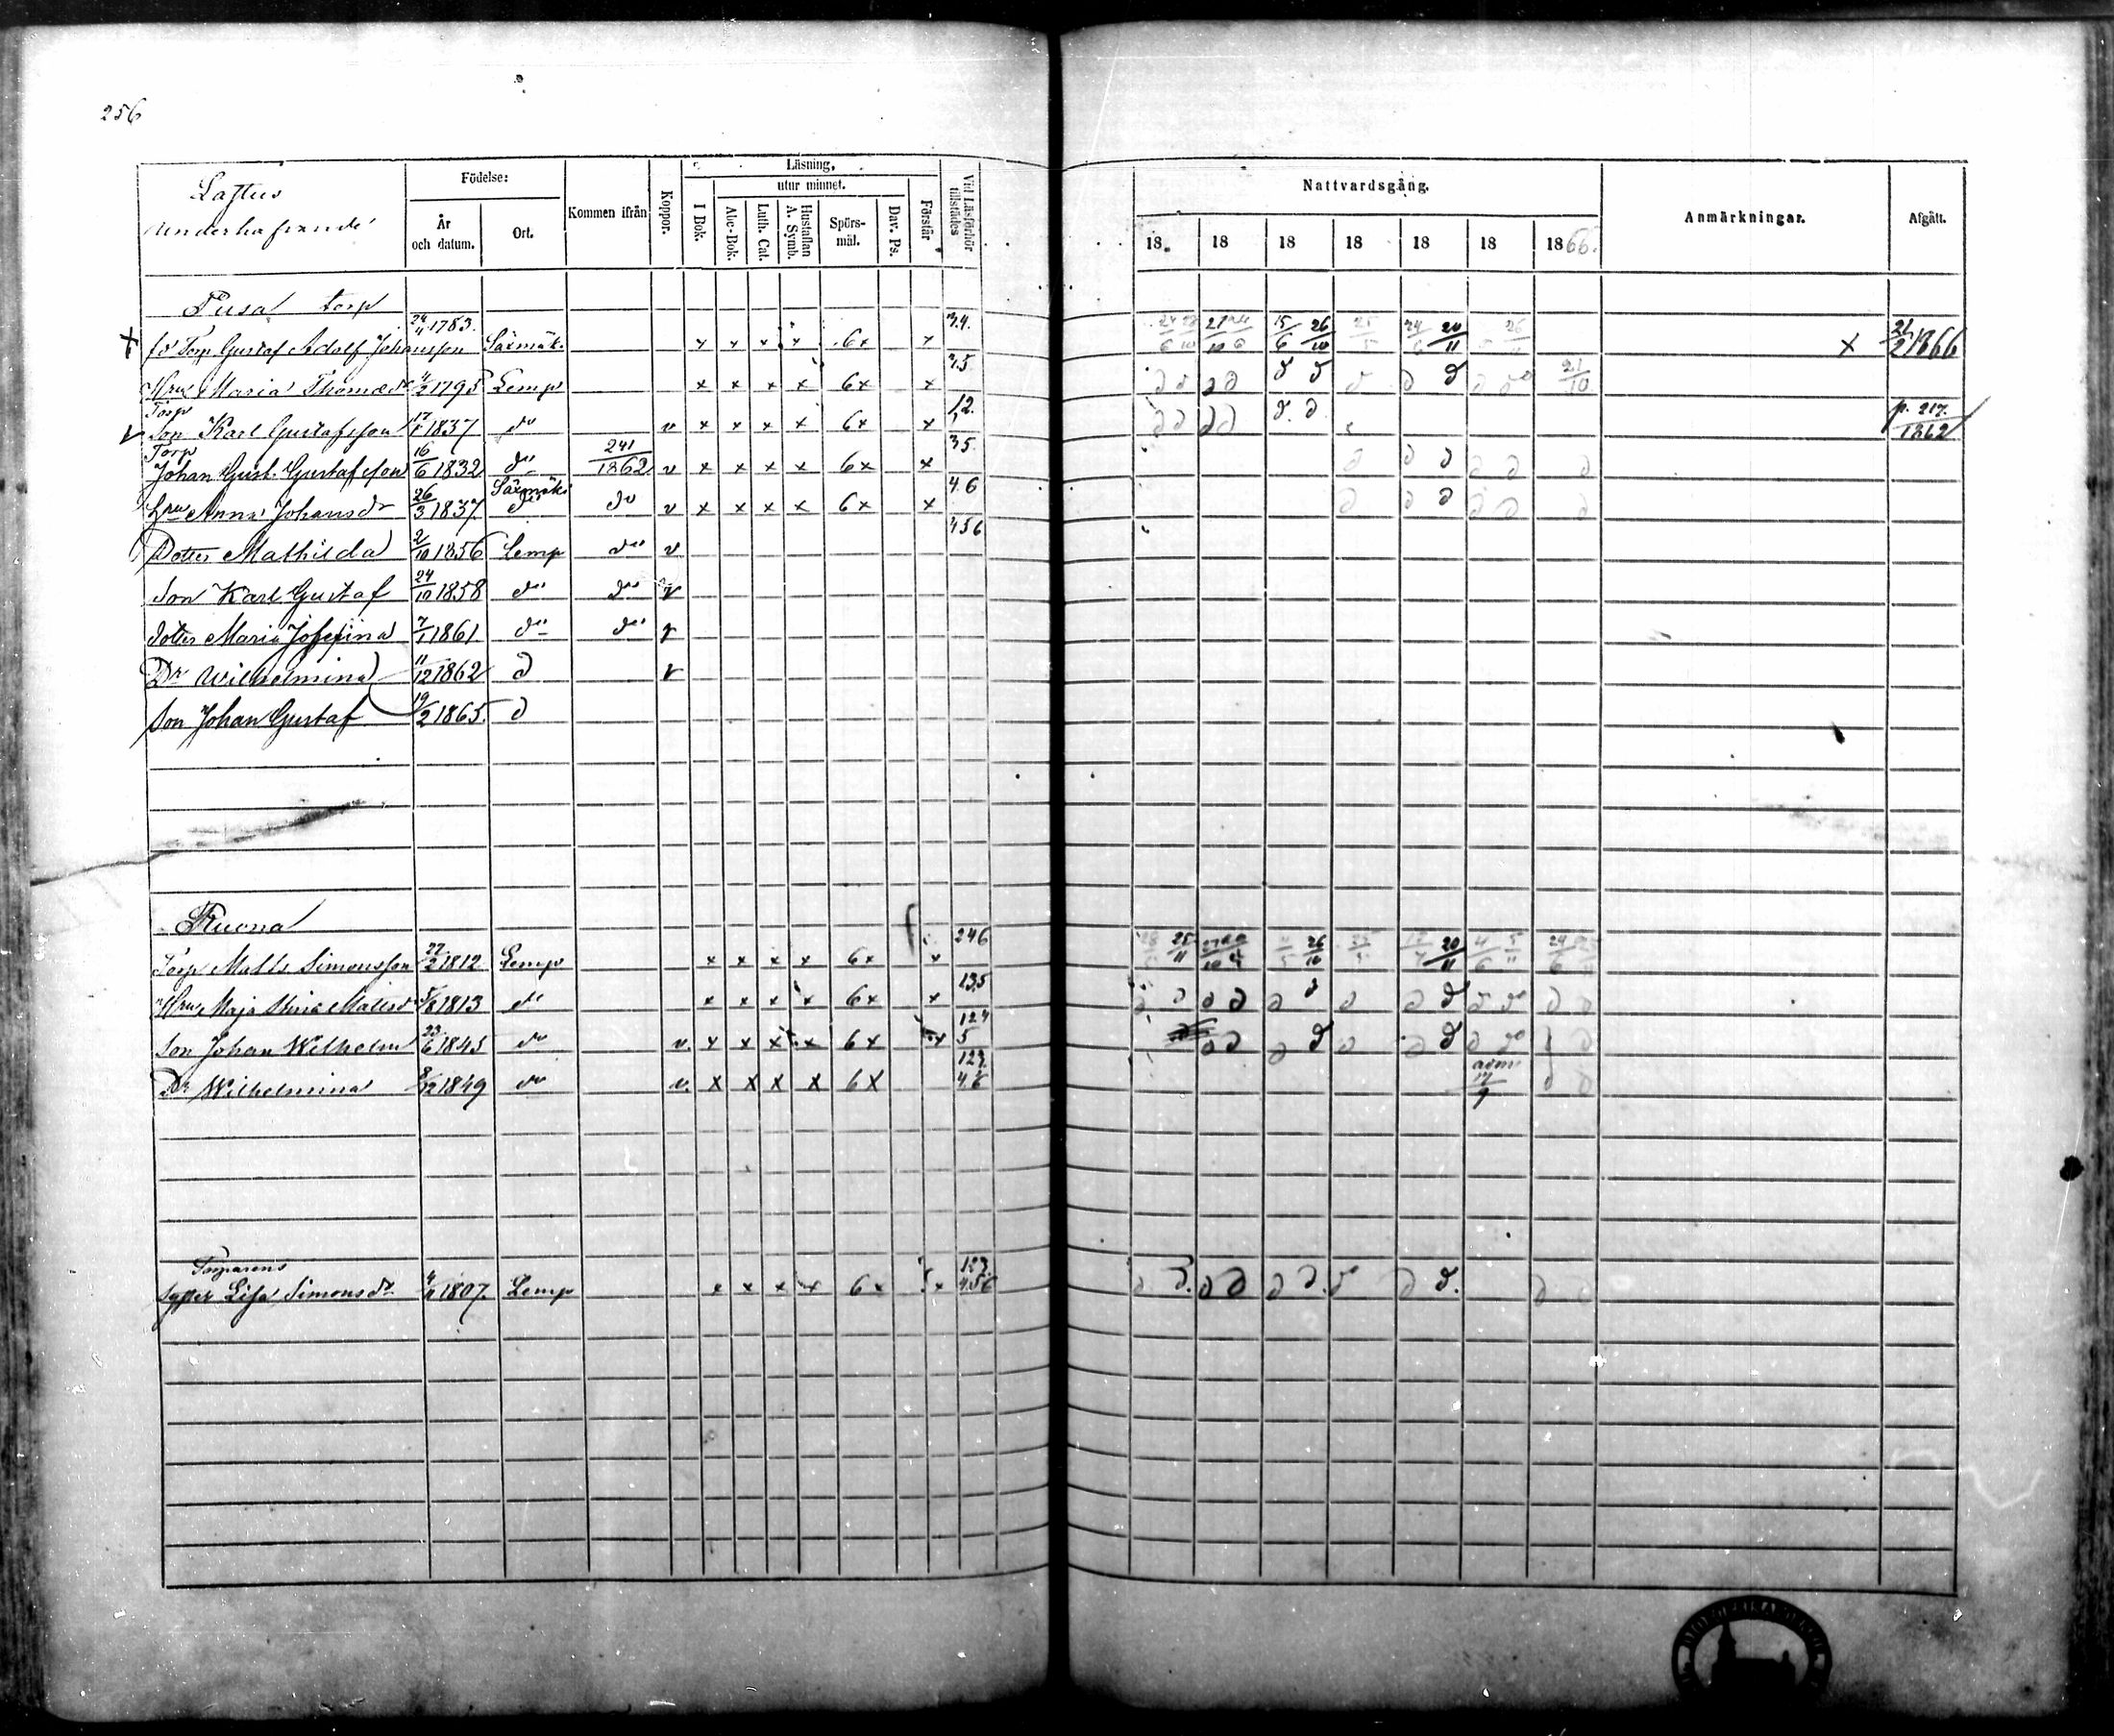 256
Laftus
underhafvande
Födelse:
År och datum.
Ort.
Kommen ifrån
Koppor.
Läsning,
utur minnet.
I Bok.
Abc-Bok.
Luth. Cat.
Hustaflan A. Symb.
Spörs-mål.
Dav. Ps.
Förstår
Vid Läsförhör tillstädes
Nattvardsgång.
18 18 18 18 18 18 1866.
Anmärkningar.
Afgått.
Pusa torp
x fd Torp Gustaf Adolf Johansson 24/11 1783. Säxmäk. x x x x 6x x 3.4. 15/6 26/10 24/6 20/11 x 21/2 1866
Hru Maria Thomasdr 4/2 1795 Lemp x x x x 6x x 3.5 21/10
Torp
v Son Karl Gustafsson 17/1 1837 do v x x x x 6x x 1,2. p. 217/1862
Torp
Johan Gust. Gustafsson 16/6 1832 do 241/1862 v x x x x 6x x 35.
Hru Anna Johansdr 26/3 1837 Säxmäki do v x x x x 6x x 4.6
Dotter Mathilda 2/10 1856 Lemp do v 456
Son Karl Gustaf 24/10 1858 do do v
dotter Maria Josefina 7/1 1861. do do v
Dr Wilhelmina 11/12 1862 d v
Son Johan Gustaf 19/2 1865. d
Ruona
Torp Matts Simonsson 22/2 1812 Lemp x x x x 6x x 246 25/11 26/10 20/11 4/6 5/11 24/6
Hru Maja Stina Mattsdr 5/6 1813 do x x x x 6x x 135
Son Johan Wilhelm 23/6 1845 do v. x x x x 6x x 124 5
Dr Wilhelmina 8/12 1849 do v. x x x x 6x 123. 46 adm 17/9
Torparens
syster Lisa Simonsdr 4/11 1807. Lemp x x x x 6x x 123. 456